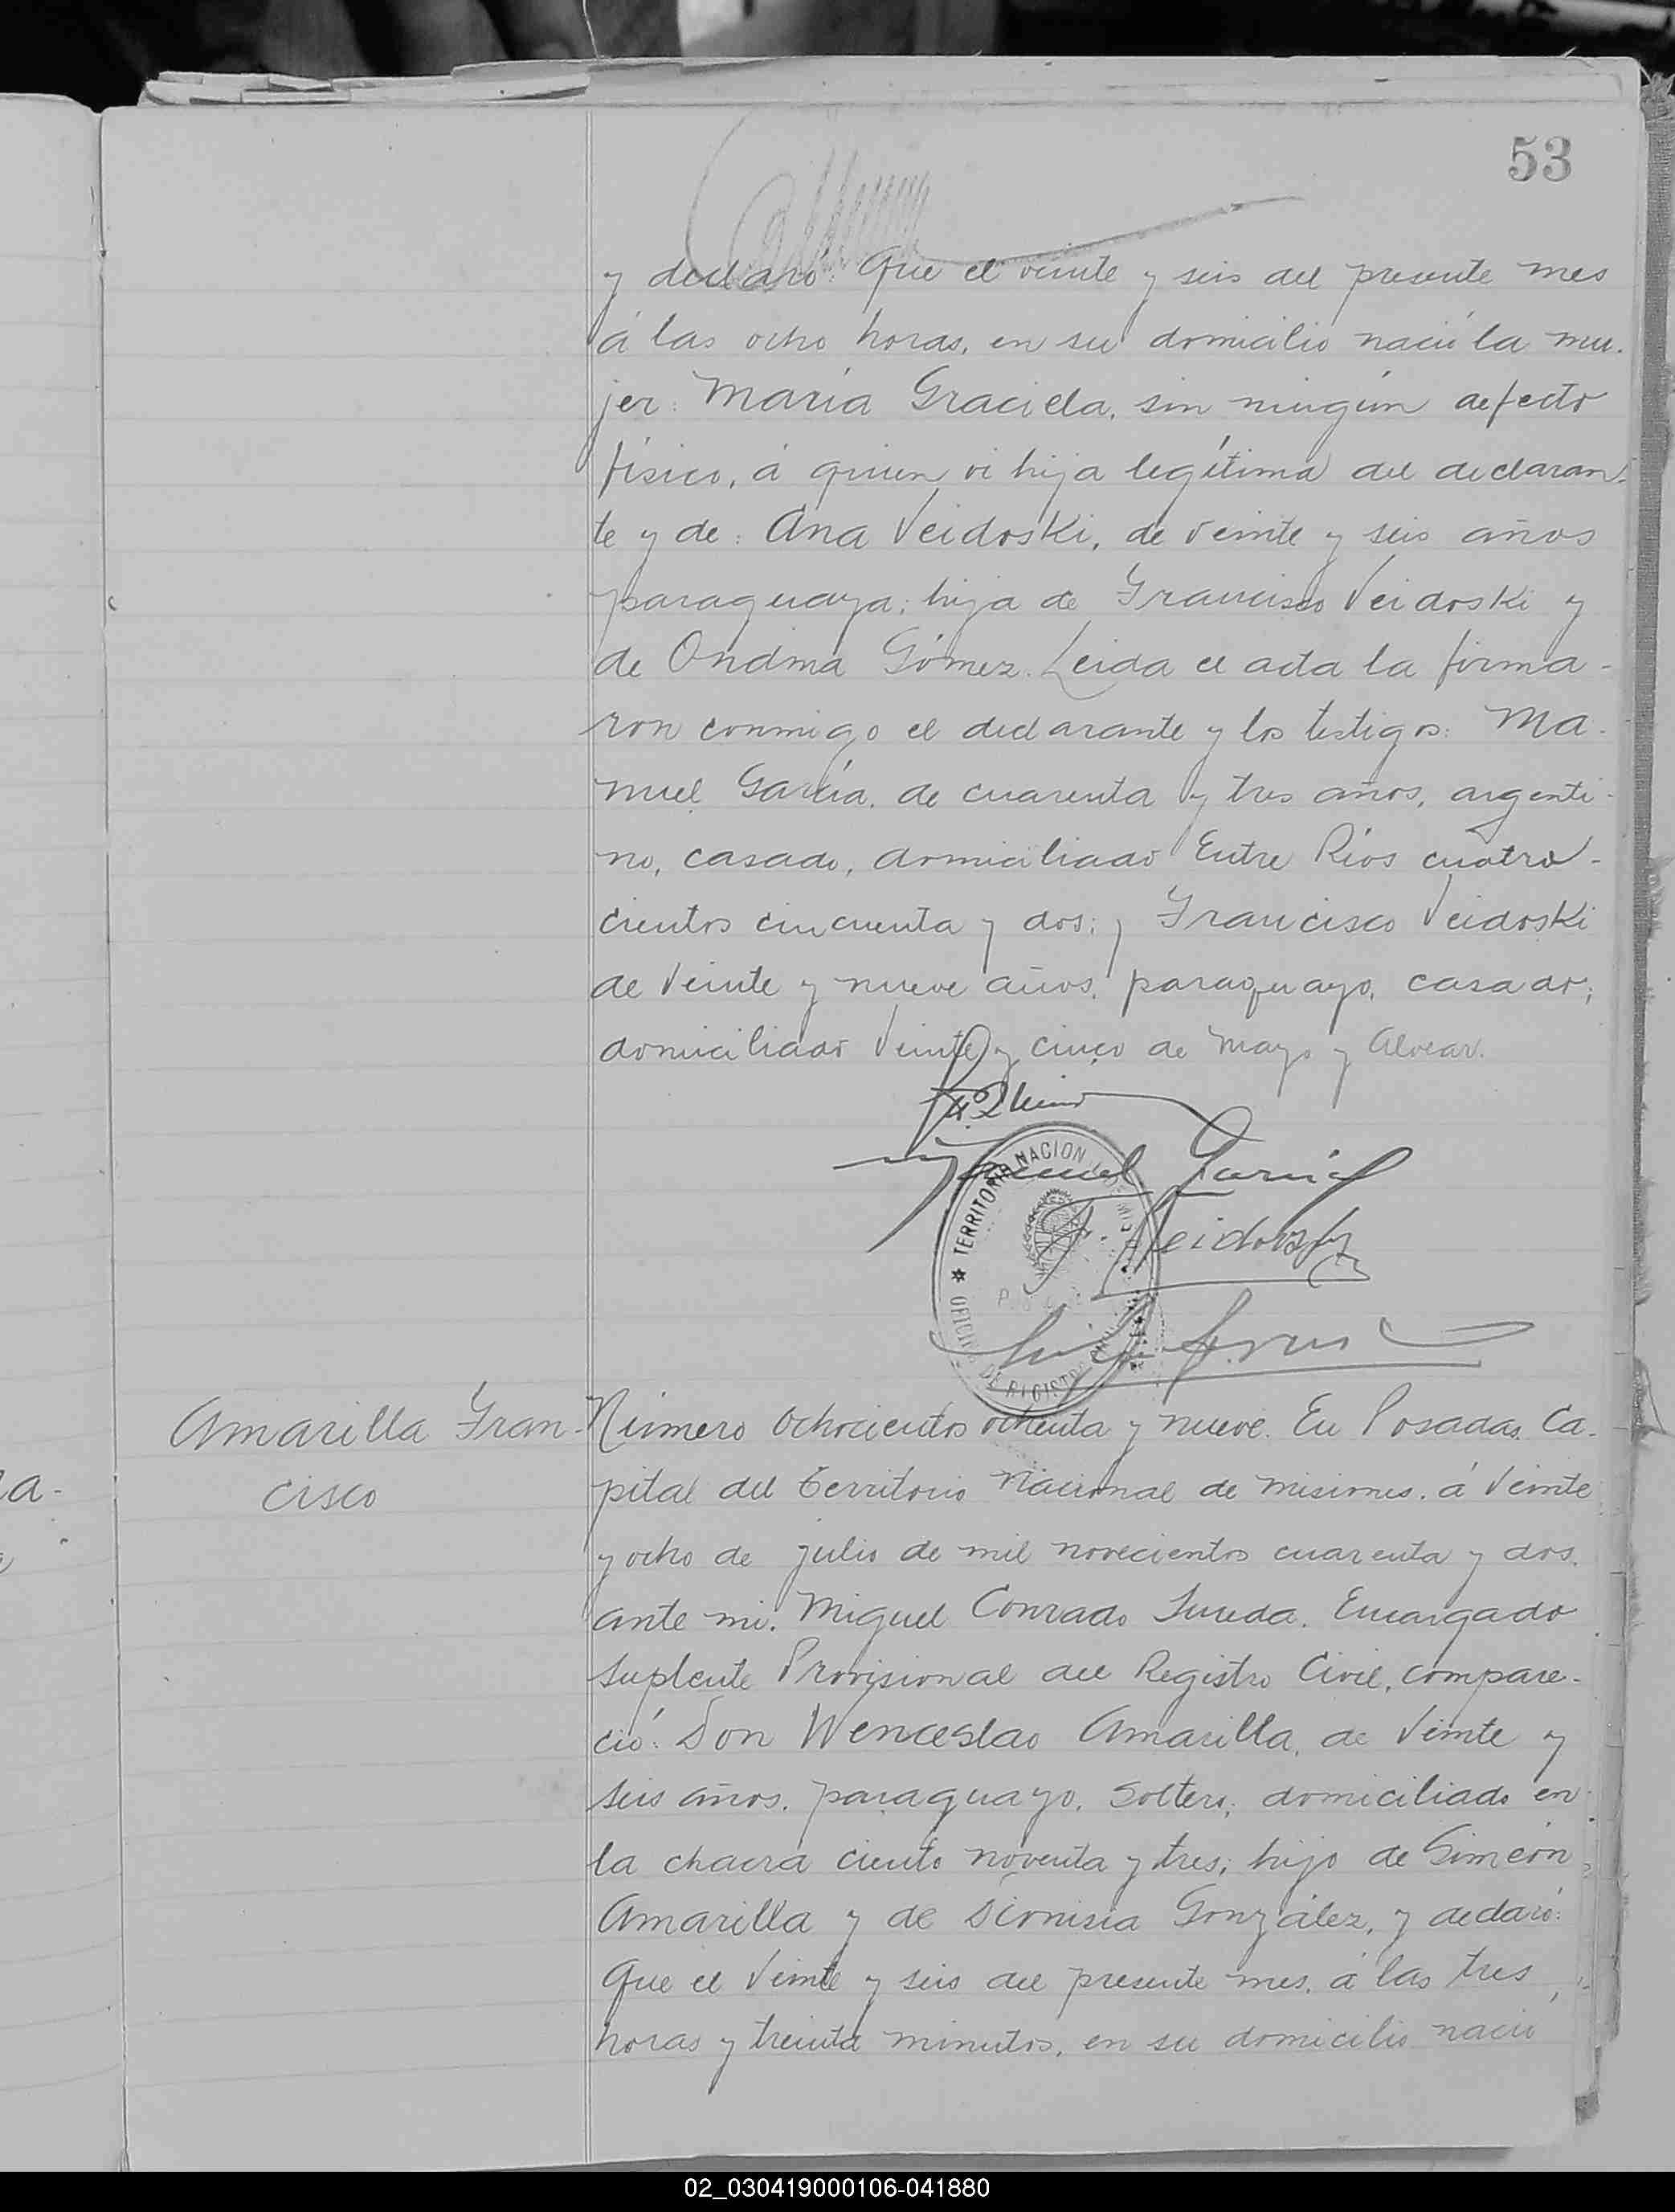 53
y declaró: Que el veinte y seis del presente mes
á las ocho horas, en su domicilio nació la mu-
jer: María Graciela, sin ningún defecto
físico, á quien vi hija legítima del declaran-
te y de: Ana Veidoski, de veinte y seis años
paraguaya; hija de Francisco Veidoski y
de Ondina Gómez. Leida el acta la firma-
ron conmigo el declarante y los testigos: Ma-
nuel García, de cuarenta y tres años, argenti-
no, casado, domiciliado Entre Ríos cuatro-
cientos cincuenta y dos; y Francisco Veidoski
de veinte y nueve años, paraguayo, casado;
domiciliado Veinte y cinco de Mayo y Alvear.
Manuel García
F. Veidosky
TERRITORIO NACIONAL DE MISIONES
OFICINA DE REGISTRO CIVIL
Amarilla Fran-
cisco
Número Ochocientos ochenta y nueve. En Posadas, Ca-
pital del Territorio Nacional de Misiones, á veinte
y ocho de julio de mil novecientos cuarenta y dos,
ante mi, Miguel Conrado Sureda, Encargado
Suplente Provisional del Registro Civil, compare-
ció: Don Wenceslao Amarilla, de veinte y
seis años, paraguayo, soltero; domiciliado en
la chacra ciento noventa y tres; hijo de Simeón
Amarilla y de Dionisia González, y declaró:
Que el veinte y seis del presente mes, á las tres
horas y treinta minutos, en su domicilio nació
a-
02_030419000106-041880